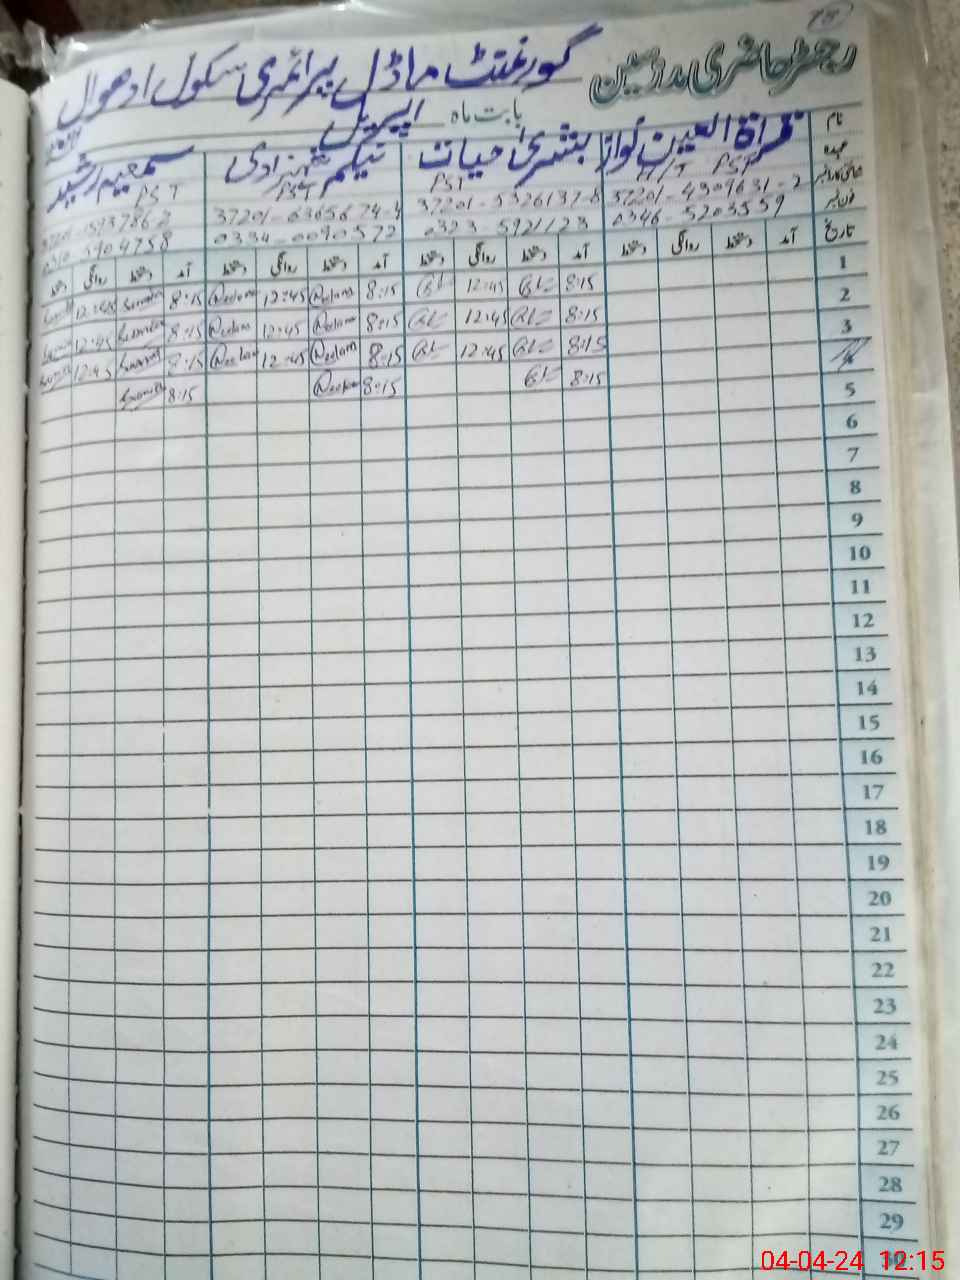 15
رجسٹر حاضری مدرسین گورنمنٹ ماڈل پرائمری سکول ادھوال
بابت ماہ اپریل
نام قراۃ العین نواز بشریٰ حیات نیلم شہزادی سمعیہ رشید
عہدہ H/T PST PST PST PST
37201-4309631-2 37201-5326137-8 37201-6365674-4
فون نمبر 0346-5203559 0323 5921123 0334-0090572 0310 5904758
تاریخ آمد دستخط روانگی دستخط آمد دستخط روانگی دستخط آمد دستخط روانگی دستخط آمد دستخط روانگی دستخط
1 8:15 12:45 8:15 Neelam 12:45 Neelam 8:15 12:45
2 8:15 12:45 8:15 Neelam 12:45 Neelam 8:15 12:45
3 8:15 12:45 8:15 Neelam 12:45 Neelam 8:15 12:45
8:15 8:15 Neelam 8:15
5
6
7
8
9
10
11
12
13
14
15
16
17
18
19
20
21
22
23
24
25
26
27
28
29
30
04-04-24 12:15